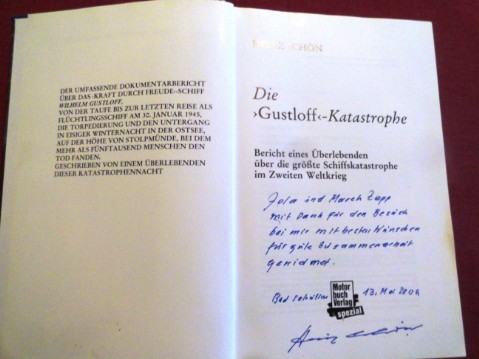 DER UMFASSENDE DOKUMENTARBERICHT
ÜBER DAS ›KRAFT DURCH FREUDE‹-SCHIFF
WILHELM GUSTLOFF,
VON DER TAUFE BIS ZUR LETZTEN REISE ALS
FLÜCHTLINGSSCHIFF AM 30. JANUAR 1945,
DIE TORPEDIERUNG UND DEN UNTERGANG
IN EISIGER WINTERNACHT IN DER OSTSEE,
AUF DER HÖHE VON STOLPMÜNDE, BEI DEM
MEHR ALS FÜNFTAUSEND MENSCHEN DEN
TOD FANDEN,
GESCHRIEBEN VON EINEM ÜBERLEBENDEN
DIESER KATASTROPHENNACHT
HEINZ SCHÖN
Die
›Gustloff‹-Katastrophe
Bericht eines Überlebenden
über die größte Schiffskatastrophe
im Zweiten Weltkrieg
Jola und Marek
mit Dank für den Besuch
bei mir mit besten Wünschen
für gute Zusammenarbeit
gewidmet.
Bad 13. Mai
Motor
buch
Verlag
spezial